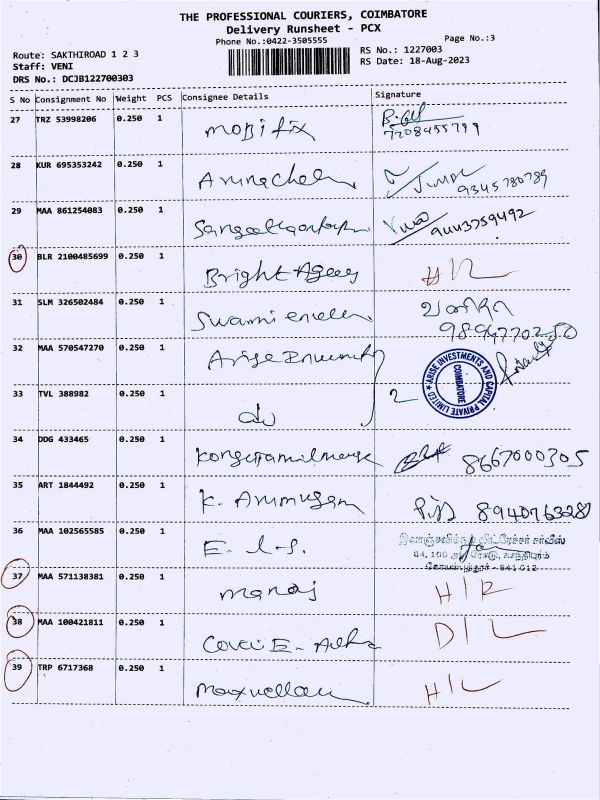 THE PROFESSIONAL COURIERS, COIMBATORE
Delivery Runsheet - PCX
Phone No.:0422-3505555
Page No.:3
Route: SAKTHIROAD 1 2 3
Staff: VENI
DRS No.: DCJB122700303
RS No.: 1227003
RS Date: 18-Aug-2023
S No Consignment No Weight PCS Consignee Details Signature
27 TRZ 53998206 0.250 1 Mobifix
7708455799
28 KUR 695353242 0.250 1
9345780789
29 MAA 861254083 0.250 1
9443759492
30 BLR 2100485699 0.250 1 Bright
31 SLM 326502484 0.250 1 Swami
32 MAA 570547270 0.250 1 Arise
ARISE INVESTMENTS AND CAPITAL PRIVATE LIMITED
COIMBATORE
33 TVL 388982 0.250 1 do 2
34 DDG 433465 0.250 1 8667000305
35 ART 1844492 0.250 1 K. Arumugam
36 MAA 102565585 0.250 1 E. L. S.
37 MAA 571138381 0.250 1 Manoj
38 MAA 100421811 0.250 1 D/L
39 TRP 6717368 0.250 1